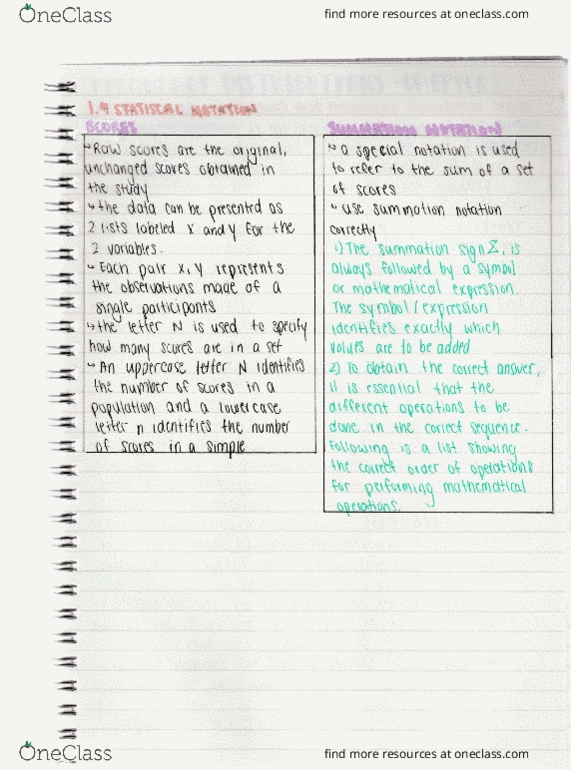 OneClass
find more resources at oneclass.com
1.4 STATISCAL NOTATION
SCORES
↳Raw scores are the original,
unchanged scores obtained in
the study
↳ the data can be presented as
2 lists labeled X and y for the
2 variables.
↳ Each pair X,Y represents
the observations made of a
single participants
↳ the letter N is used to specify
how many scores are in a set
↳ An uppercase letter N identifies
the number of scores in a
population and a lowercase
letter n identifies the number
of scores in a simple
SUMMATION NOTATION
↳ a special notation is used
to refer to the sum of a set
of scores
↳ use summation notation
correctly
1) The summation sign Σ, is
always followed by a symbol
or mathematical expression.
The symbol / expression
identifies exactly which
values are to be added
2) To obtain the correct answer,
it is essential that the
different operations to be
done in the correct sequence.
Following is a list showing
the correct order of operations
for performing mathematical
operations.
OneClass
find more resources at oneclass.com